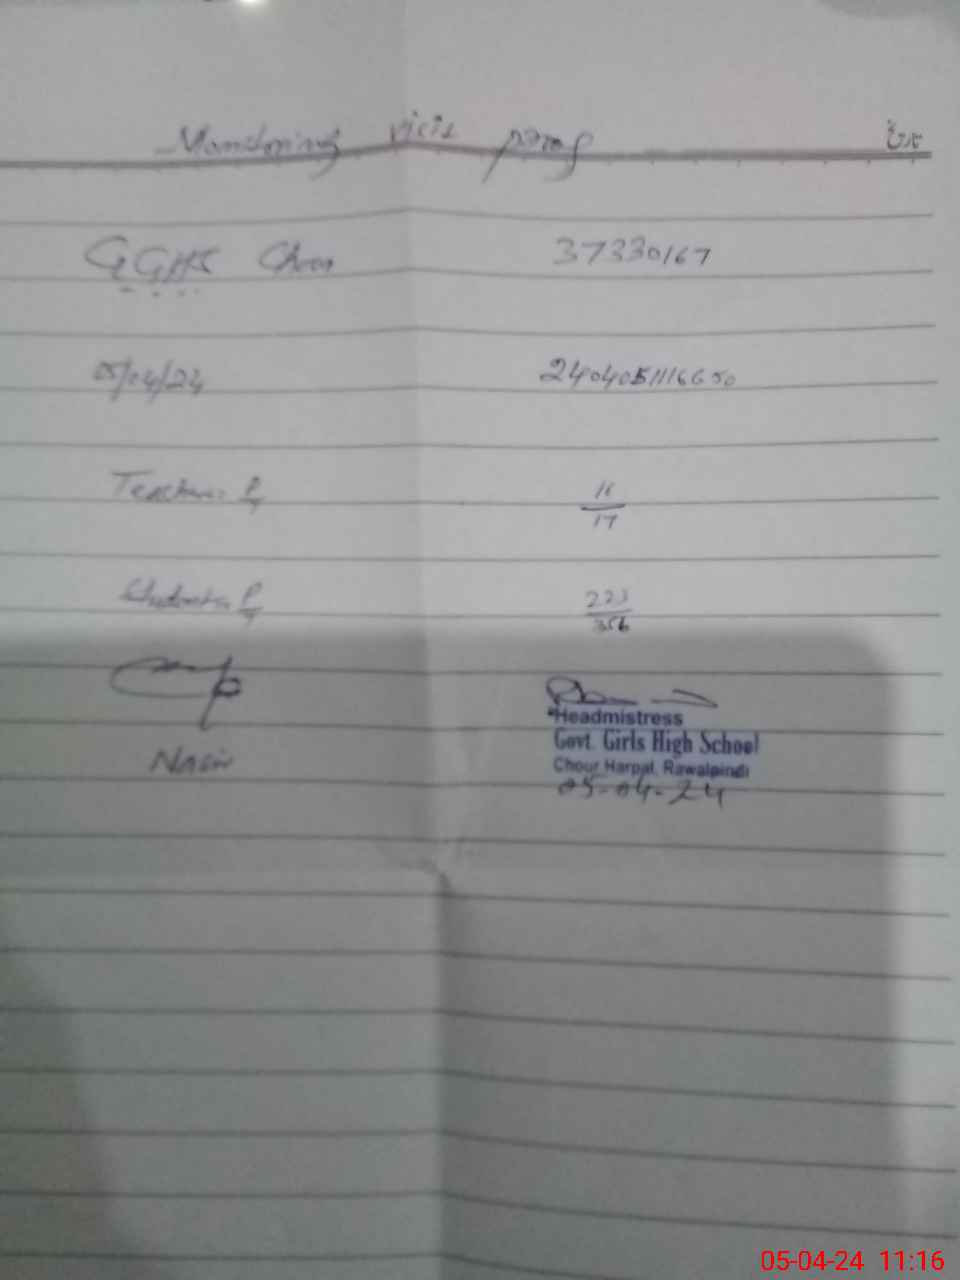 Monitoring visit pamg
GGHS Chour 37330167
05/04/24 2404051116650
Teachers P/T 16/17
Students P/T 223/356
Nasir
Headmistress
Govt. Girls High School
Chour Harpal, Rawalpindi
05-04-24
05-04-24 11:16